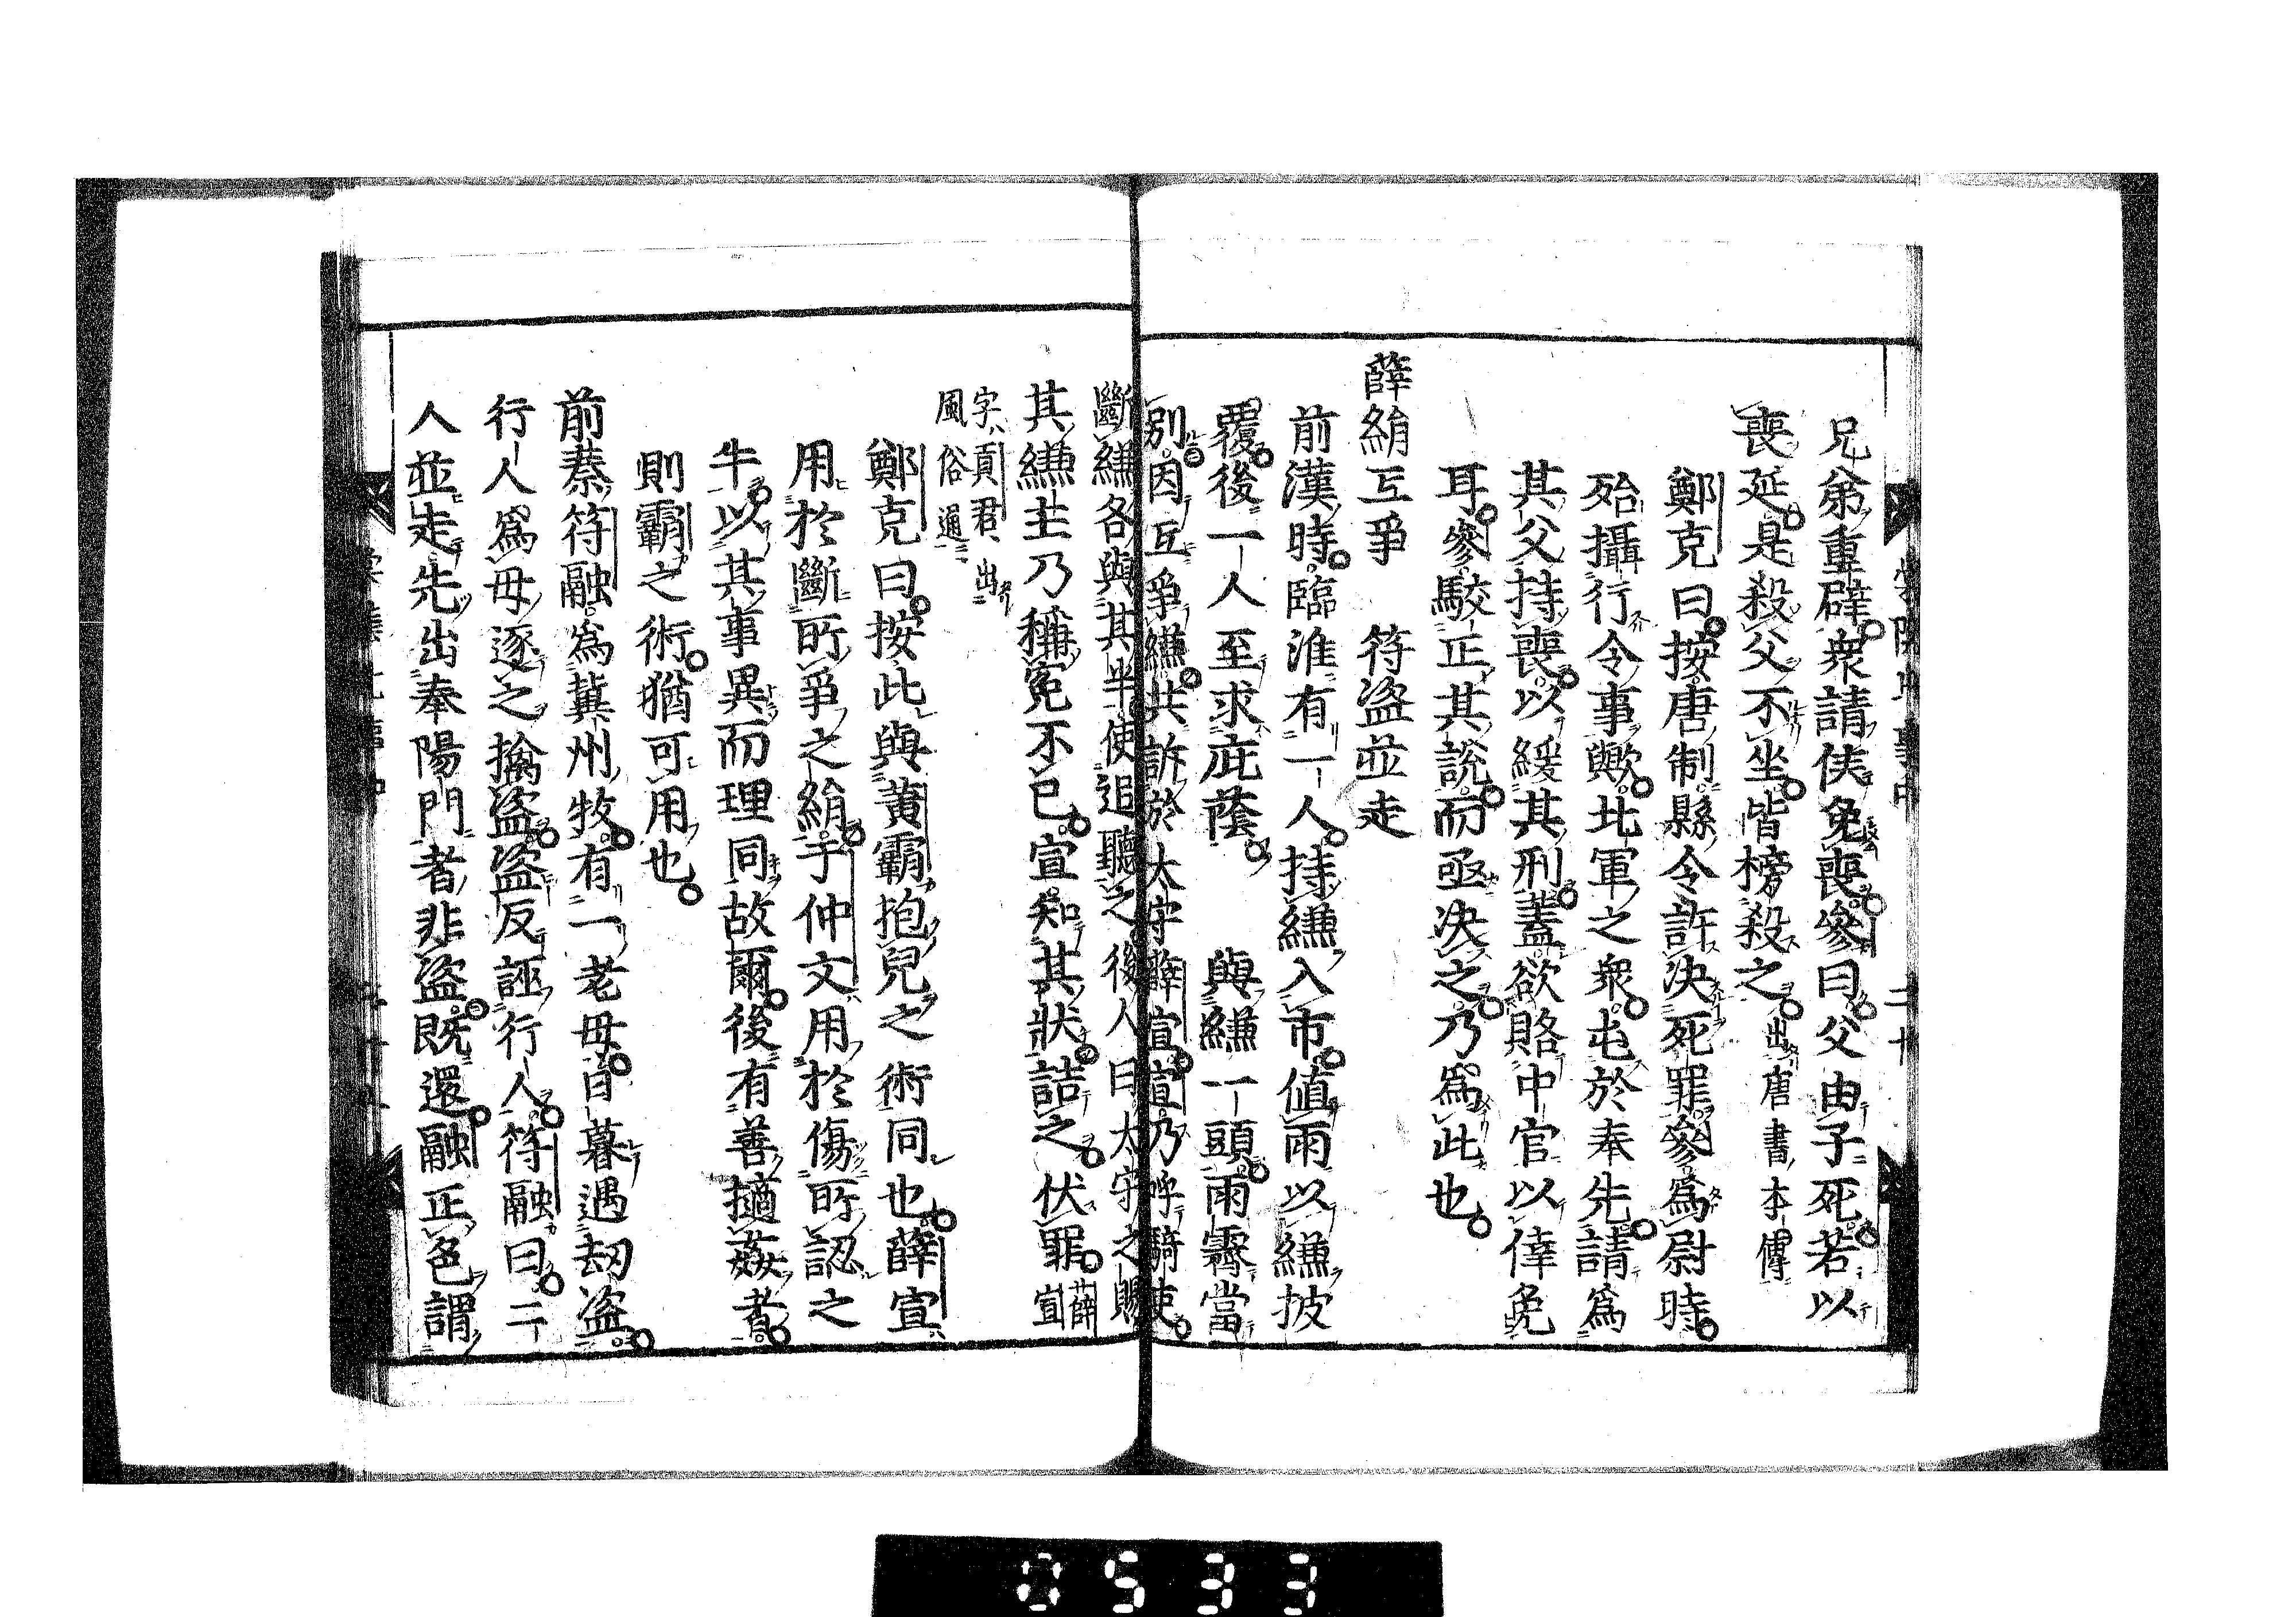 兄弟重辟衆請俟免喪參曰父由子死若以
喪延是殺父不坐皆榜殺之出唐書本傳
鄭克曰按唐制縣令許決死罪參爲尉時
殆攝行令事歟北軍之衆屯於奉先請爲
其父持喪以緩其刑蓋欲賂中官以倖免
耳參駮正其説而亟决之乃爲此也
薛絹互爭　符盜並走
前漢時臨淮有一人持縑入市値雨以縑披
覆後一人至求庇蔭　與縑一頭雨霽當
別因互爭縑共訴於太守薛宣宣乃呼騎吏
斷縑各與其半使追聽之後人曰太守之賜
其縑主乃稱冤不已宣知其狀詰之伏罪薛宣
字貢君出
風俗通
鄭克曰按此與黄霸抱兒之術同也薛宣
用於斷所爭之絹于仲文用於傷所認之
牛以其事異而理同故爾後有善擿姦者
則霸之術猶可用也
前秦符融爲冀州牧有一老母日暮遇劫盜
行人爲母逐之擒盜盜反誣行人符融曰二
人並走先出奉陽門者非盜既還融正色謂
0533